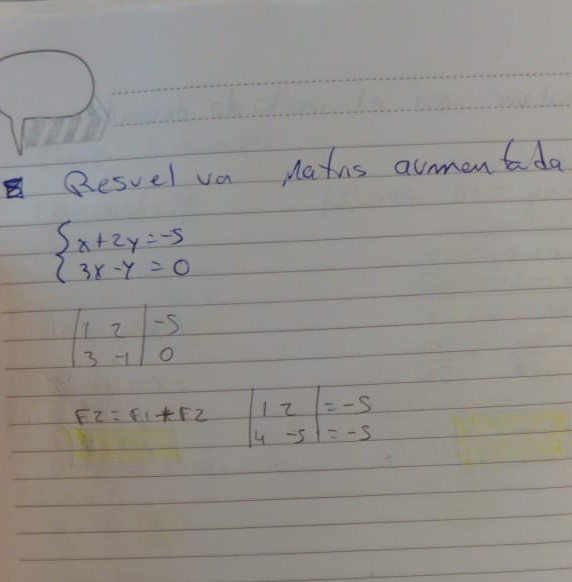 Resuelva Matris aumentada
{x+2y=-5
{3x-y=0
|1 2|-5
|3 -1|0
F2=F1+F2 |1 2|=-5
|4 -5|=-5